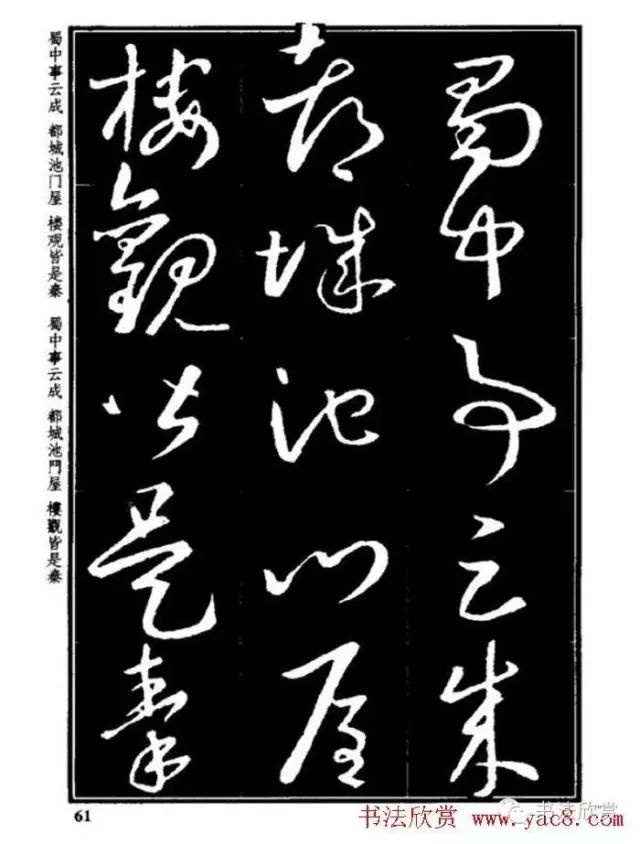 蜀中事云成
都城池门屋
樓觀皆是秦
蜀中事云成 都城池门屋 楼观皆是秦 蜀中事云成 都城池門屋 樓觀皆是秦
61
书法欣赏 www.yac8.com
书法欣赏